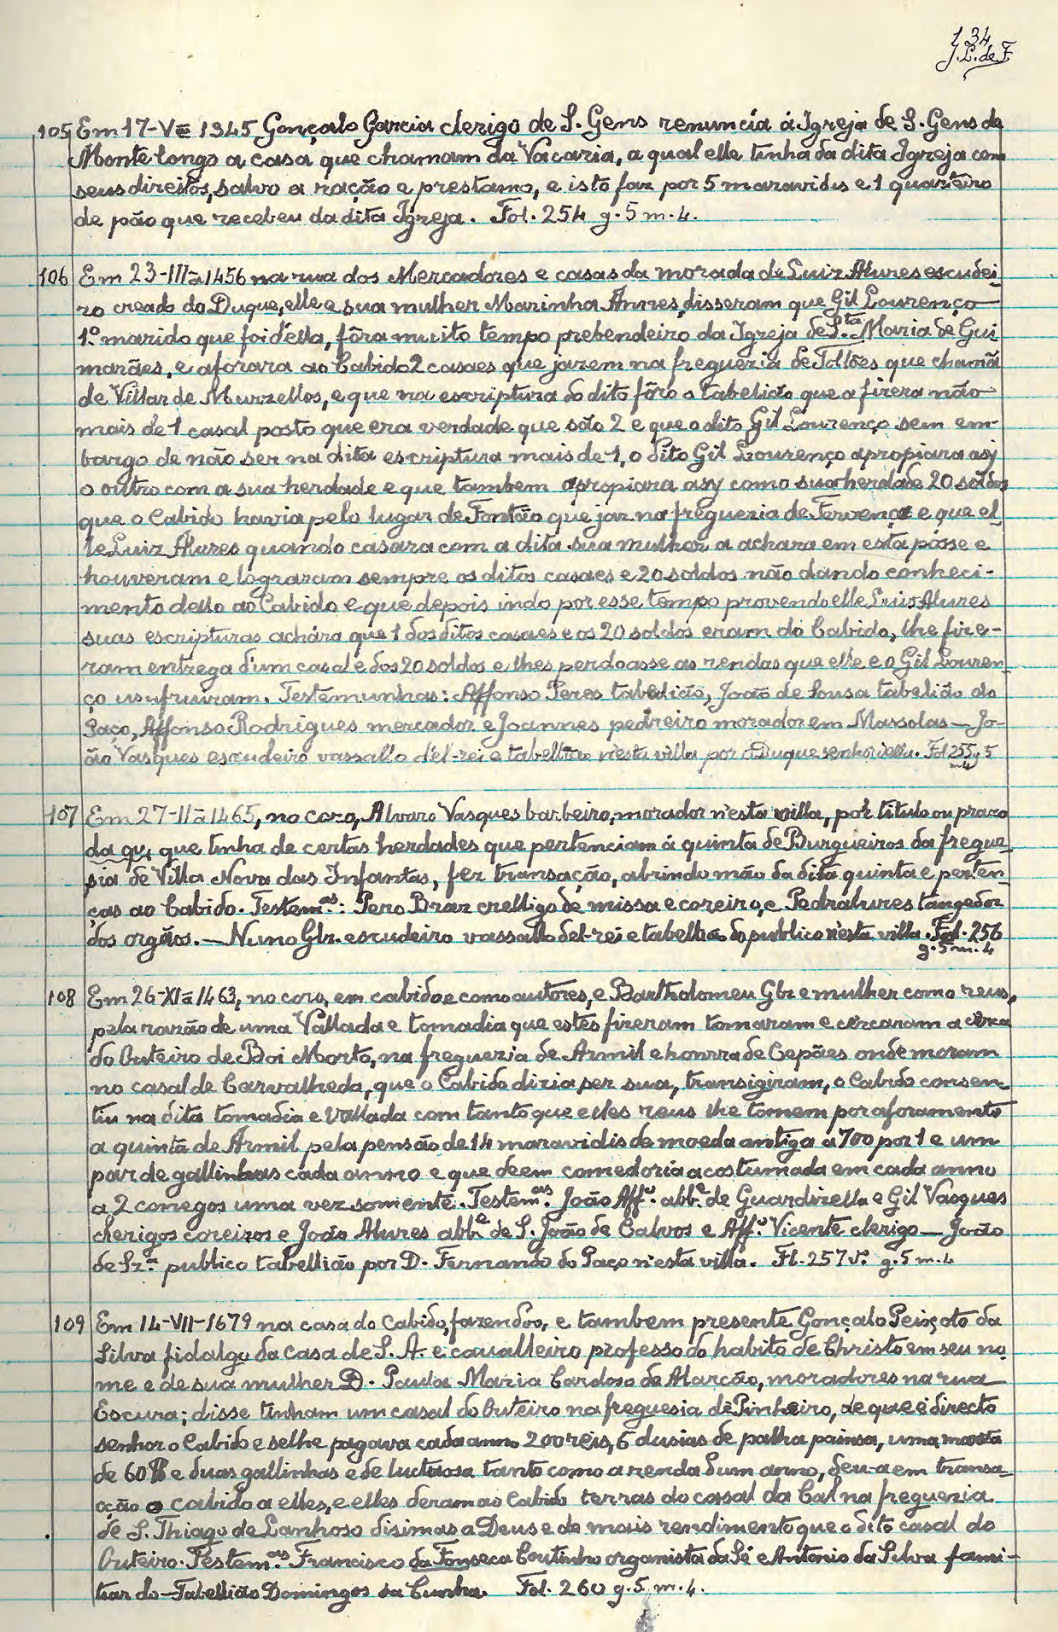 134
J. L. de F.
105 Em 17-V E 1345 Gonçalo Garcia clerigo de S. Gens renuncía á Igreja de S. Gens de
Monte longo a casa que chamam da Vacaria, a qual elle tinha da dita Igreja com
seus direitos, salvo a ração e prestamo, e isto faz por 5 maravidis e 1 quarteiro
de pão que recebeu da dita Igreja. Fol. 254 g. 5 m. 4.
106 Em 23-III a 1456 na rua dos Mercadores e casas da morada de Luiz Alvres escudei-
ro creado do Duque, elle e sua mulher Marinha Annes, disseram que Gil Lourenço
1.º marido que foi d'ella, fôra muito tempo prebendeiro da Igreja de S.ta Maria de Gui
marães, e aforara ao Cabido 2 casaes que jazem na freguezia de Tollões que chamã
de Villar de Murzellos, e que na escriptura do dito fôro o tabelião que a fizera não
mais de 1 casal posto que era verdade que são 2 e que o dito Gil Lourenço sem em-
bargo de não ser na dita escriptura mais de 1, o dito Gil Lourenço apropiara asy
o outro com a sua herdade e que tambem apropiara asy como sua herdade 20 soldos
que o Cabido havia pelo lugar de Fontão que jaz na freguezia de Fervença e que el-
le Luiz Alvres quando casara com a dita sua mulher a achara em esta posse e
houveram e lograram sempre os ditos casaes e 20 soldos não dando conheci-
mento dello ao Cabido e que depois indo por esse tempo provendo elle Luiz Alvres
suas escripturas achára que 1 dos ditos casaes e os 20 soldos eram do Cabido, lhe fize-
ram entrega d'um casal e dos 20 soldos e lhes perdoasse as rendas que elle e o Gil Louren
ço usufruiram. Testemunhas: Affonso Peres tabelião, João de Sousa tabelião do
Paço, Affonso Rodrigues mercador e Joannes pedreiro morador em Massolas — Jo-
ão Vasques escudeiro vassallo d'el-rei e tabellião n'esta villa por o Duque senhor della. Fol 255 g. 5
m. 4
107 Em 27-II a 1465, no coro, Alvaro Vasques barbeiro, morador n'esta villa, por titulo ou prazo
da qu, que tinha de certas herdades que pertenciam á quinta de Burgueiros da fregue
sia de Villa Nova das Infantas, fez transação, abrindo mão da dita quinta e perten-
ças ao Cabido. Testem.as: Pero Braz crelligo de missa e coreiro, e Pedralvres tangedor
dos orgãos. — Nuno Glz. escudeiro vassallo del-rei e tabellião do publico n'esta villa. Fol. 256
g. 5 m. 4
108 Em 26-XI a 1463, no coro, em cabido e como autores, e Bartholomeu Glz e mulher como reus,
pela razão de uma Vallada e tomadia que estes fizeram tomaram e cercaram a cêrca
do Outeiro de Boi Morto, na freguezia de Armil e honrra de Cepães onde moram
no casal de Carvalheda, que o Cabido dizia ser sua, transigiram, o Cabido consen-
tiu na dita tomadia e vallada com tanto que elles reus lhe tomem por aforamento
a quinta de Armil pela pensão de 14 maravidis de moeda antiga a 700 por 1 e um
par de gallinhas cada anno e que deem comedoria acostumada em cada anno
a 2 conegos uma vez somente. Testem.as João Aff.º abb.e de Guardizella e Gil Vasques
cherigos coreiros e João Alvres abb.e de S. João de Calvos e Aff.º Vicente clerigo — João
de Sz.a publico tabellião por D. Fernando do Paço n'esta villa. Fl. 257 v.º g. 5 m. 4
109 Em 14-VII-1679 na casa do Cabido, fazendo-o, e tambem presente Gonçalo Peixoto da
Silva fidalgo da casa de S. A. e cavalleiro professo do habito de Christo em seu no
me e de sua mulher D. Paula Maria Cardoso de Alarcão, moradores na rua
Escura; disse tinham um casal do Outeiro na freguesia de Pinheiro, de que é directo
senhor o Cabido e se lhe pagava cada anno 200 réis, 6 dusias de palha painsa, uma marrã
de 60 ℔ e duas gallinhas e de luctuosa tanto como a renda d'um anno, deu-a em transa-
cção o cabido a elles, e elles deram ao Cabido terras do casal da Cal na freguezia
de S. Thiago de Lanhoso disimas a Deus e de mais rendimento que o dito casal do
Outeiro. Testem.as Francisco da Fonseca Coutinho organista da Sé e Antonio da Silva fami-
liar do — Tabellião Domingos da Cunha. Fol. 260 g. 5 m. 4.